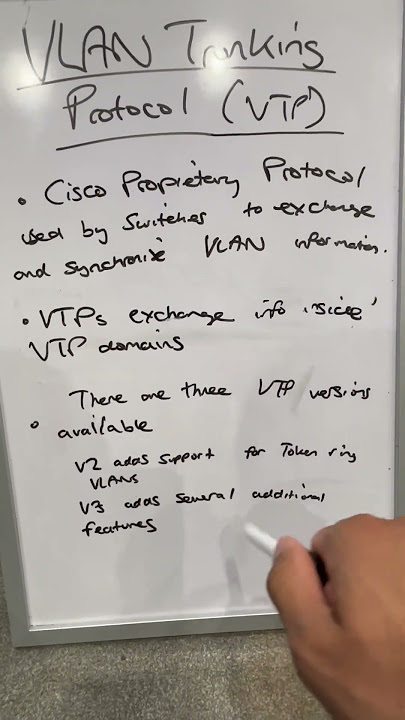 VLAN Trunking
Protocol (VTP)
• Cisco Proprietery Protocol
used by Switches to exchange
and synchronise VLAN information.
• VTPs exchange info inside
VTP domains
There are three VTP versions
• available
V2 adds support for Token ring
VLANS
V3 adds several additional
features